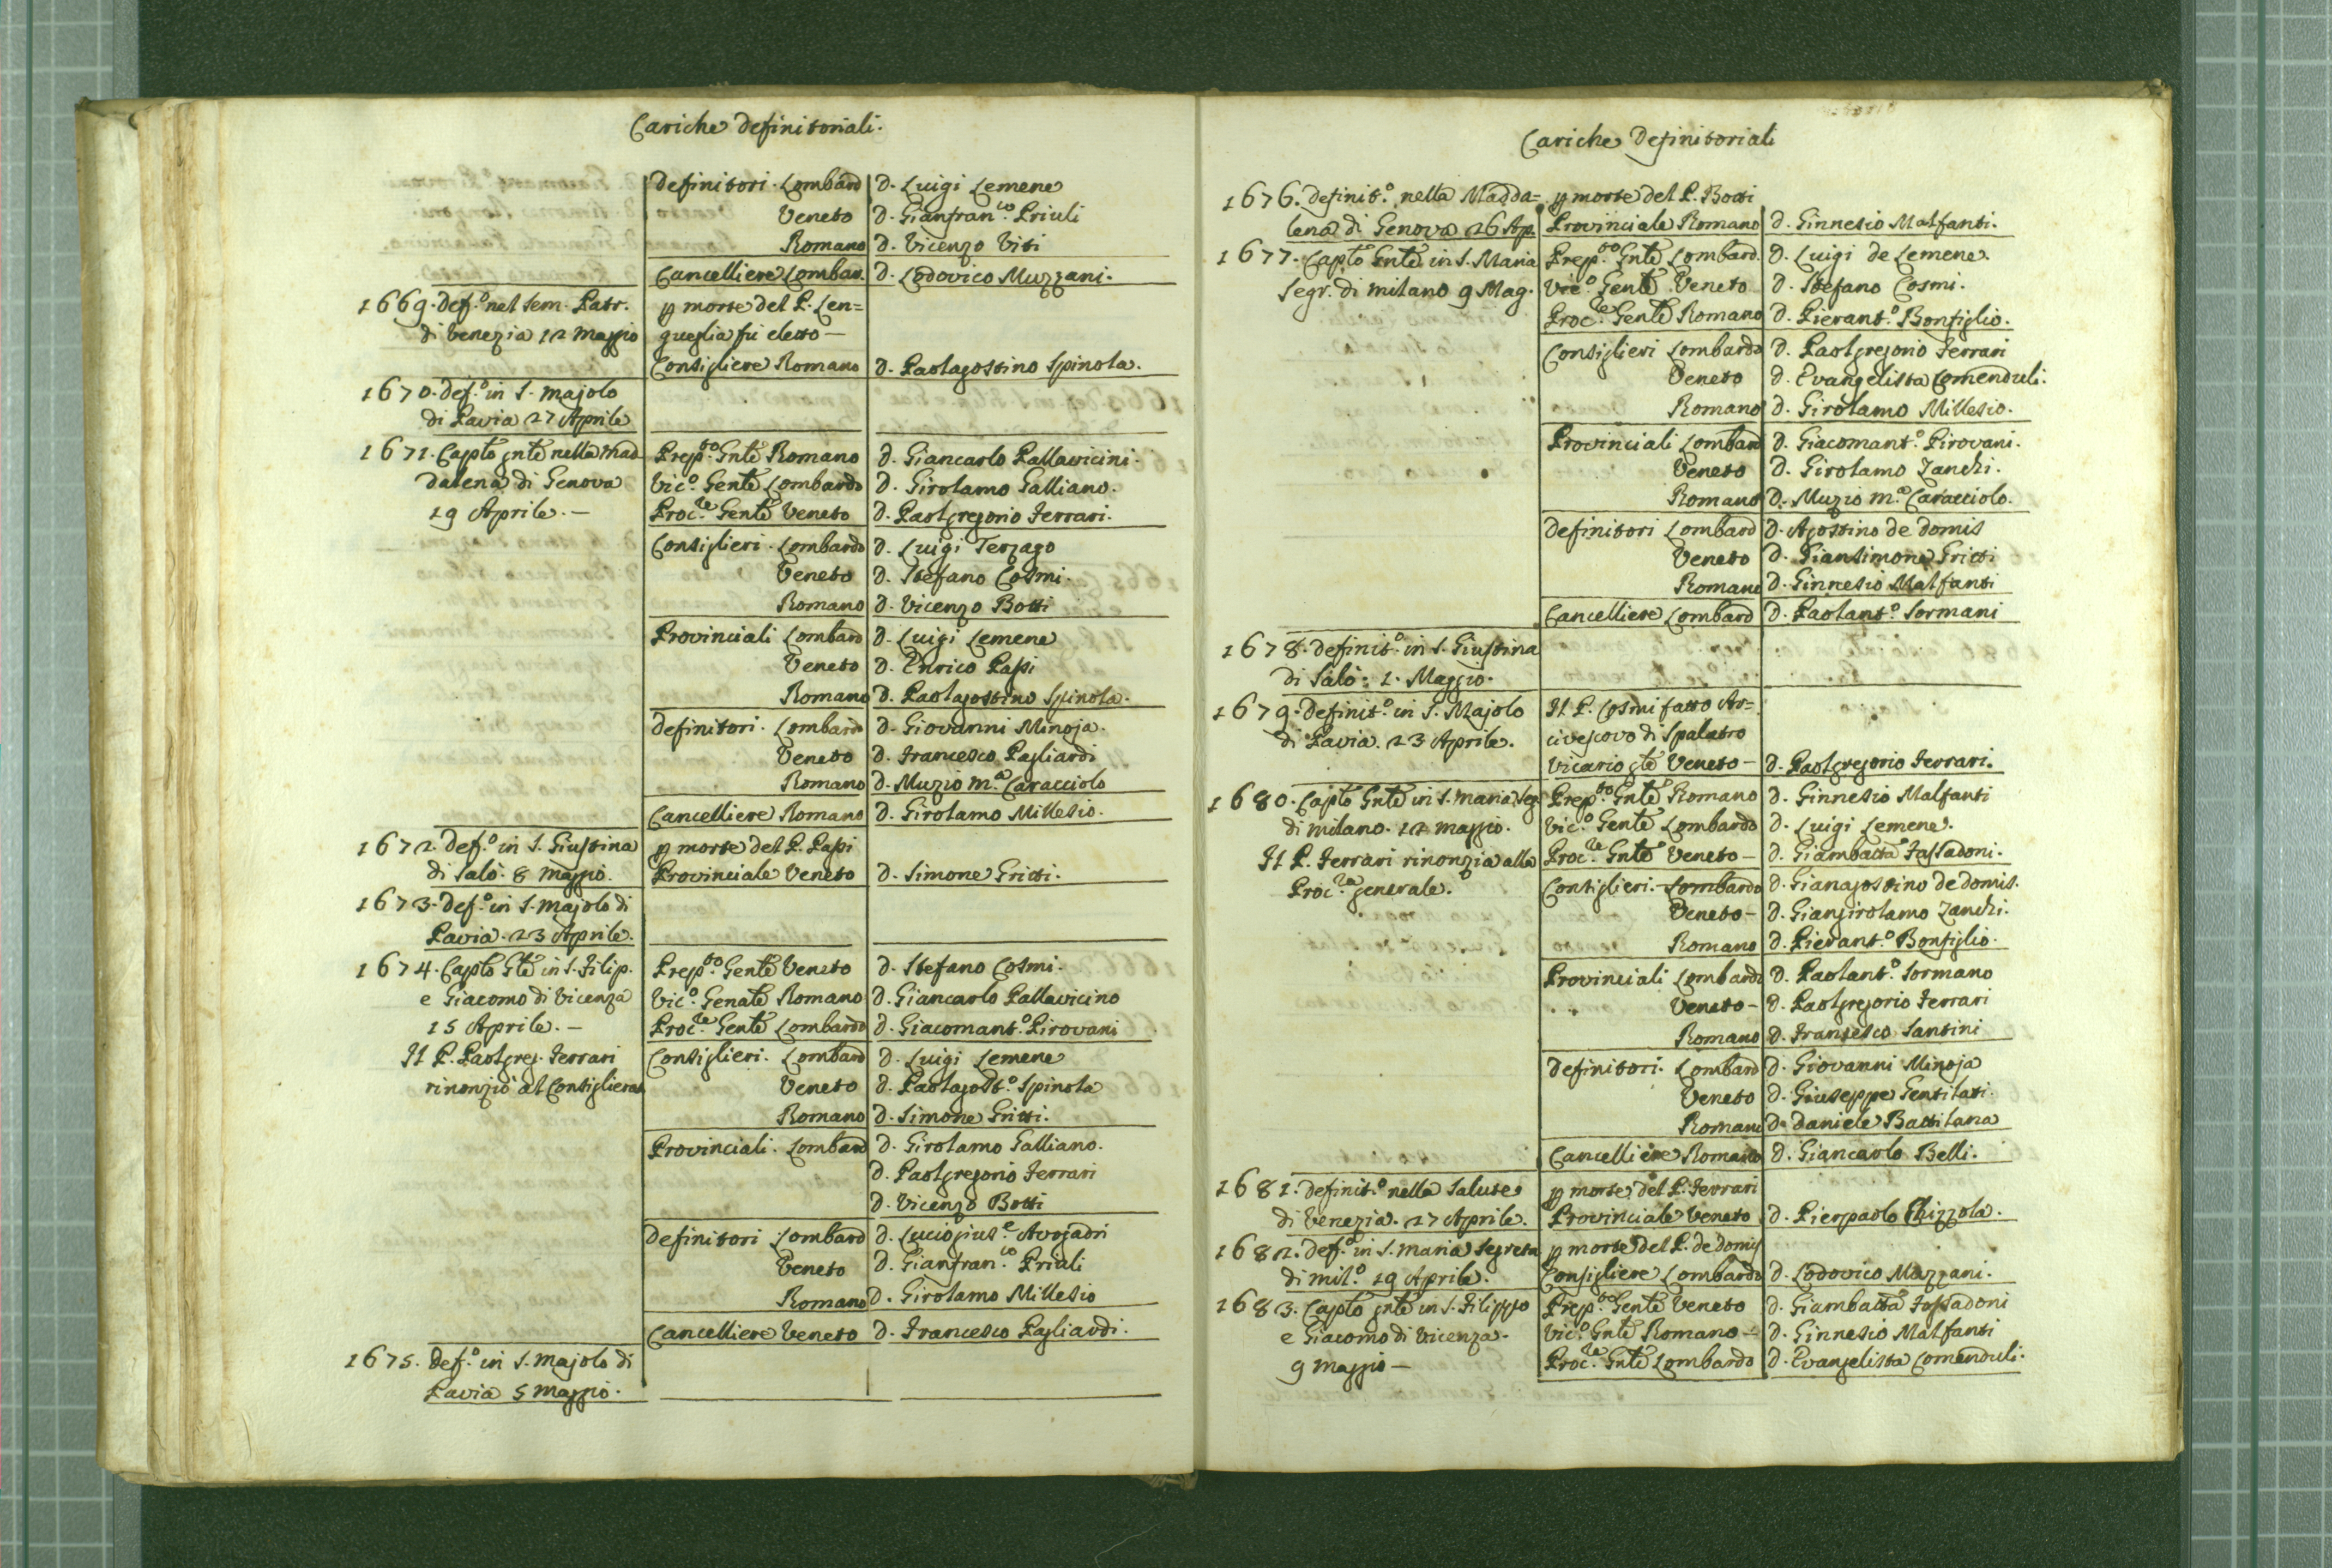 Cariche Definitoriali.
Definitori. Lombard D. Luigi Lemene
Veneto D. Gianfran.co Priuli
Romano D. Vicenzo Viti
Cancelliere Lombar. D. Lodovico Muzzani.
1669. Def.o nel Sem. Patr. p morte del P. Len=
di Venezia 12 Maggio gueglia fù eletto —
Consigliere Romano D. Paolagostino Spinola.
1670. Def.o in S. Majolo
di Pavia 27 Aprile
1671. Capto gnte nella Mad- Prep.to Gnte Romano D. Giancarlo Pallavicini.
dalena di Genova Vic.o Gente Lombardo D. Girolamo Galliano.
19 Aprile. — Proc.re Gente Veneto D. Paolgregorio Ferrari.
Consiglieri. Lombardo D. Luigi Terzago
Veneto D. Stefano Cosmi.
Romano D. Vicenzo Botti
Provinciali Lombard D. Luigi Lemene
Veneto D. Enrico Passi
Romano D. Paolagostino Spinola.
Definitori. Lombardo D. Giovanni Minoja.
Veneto D. Francesco Pagliardi
Romano D. Muzio M.a Caracciolo
Cancelliere Romano D. Girolamo Millesio.
1672. Def.o in S. Giustina p morte del P. Passi
di Salò. 8 Maggio. Provinciale Veneto D. Simone Gritti.
1673. Def.o in S. Majolo di
Pavia. 23 Aprile.
1674. Capto Gte in S. Filip. Prep.to Gente Veneto D. Stefano Cosmi.
e Giacomo di Vicenza Vic.o Genate Romano D. Giancarlo Pallavicino
15 Aprile. — Proc.re Gente Lombardo D. Giacomant.o Pirovani
Il P. Paolgreg. Ferrari Consiglieri. Lombard D. Luigi Lemene
rinonziò al Consiglierat. Veneto D. Paolagost.o Spinola
Romano D. Simone Gritti.
Provinciali. Lombard D. Girolamo Galliano.
D. Paolgregorio Ferrari
D. Vicenzo Botti
Definitori Lombard D. Luciogius.e Avogadri
Veneto D. Gianfran.co Priali
Romano D. Girolamo Millesio
Cancelliere Veneto D. Francesco Pagliardi.
1675. Def.o in S. Majolo di
Pavia 5 Maggio.
Cariche Definitoriali
1676. Definit.o nella Madda= p morte del P. Botti
lena di Genova 26 Ap. Provinciale Romano D. Ginnesio Malfanti.
1677. Capto Gnte in S. Maria Prep.to Gnte Lombard. D. Luigi de Lemene.
Segr. di Milano 9 Mag. Vic.o Gente Veneto D. Stefano Cosmi.
Proc.re Gente Romano D. Pierant.o Bonfiglio.
Consiglieri Lombardo D. Paolgregorio Ferrari
Veneto D. Evangelista Comenduli.
Romano D. Girolamo Millesio.
Provinciali Lombard D. Giacomant.o Pirovani.
Veneto D. Girolamo Zanchi.
Romano D. Muzio M.a Caracciolo.
Definitori Lombard D. Agostino de Domis
Veneto D. Giansimone Gritti
Romano D. Ginnesio Malfanti
Cancelliere Lombard D. Paolant.o Sormani
1678. Definit.o in S. Giustina
di Salò: 1. Maggio.
1679. Definit.o in S. Majolo Il P. Cosmi fatto Ar=
di Pavia. 23 Aprile. civescovo di Spalatro
Vicario gte Veneto — D. Paolgregorio Ferrari.
1680. Capto Gnte in S. Maria Seg. Prep.to Gnte Romano D. Ginnesio Malfanti
di Milano. 12 Maggio. Vic.o Gente Lombardo D. Luigi Lemene.
Il P. Ferrari rinonzia alla Proc.re Gnte Veneto — D. Giambatta Fassadoni.
Proc.ra generale. Consiglieri. Lombardo D. Gianagostino de Domis.
Veneto — D. Giangirolamo Zanchi.
Romano D. Pierant.o Bonfiglio.
Provinciali Lombardo D. Paolant.o Sormano
Veneto — D. Paolgregorio Ferrari
Romano D. Francesco Santini
Definitori. Lombard D. Giovanni Minoja
Veneto D. Giuseppe Gentilati.
Romano D. Daniele Battilana
Cancelliere Romano D. Giancarlo Belli.
1681. Definit.o nella Salute p morte del P. Ferrari
di Venezia. 27 Aprile. Provinciale Veneto D. Pierpaolo Chizzola.
1682. Def.o in S. Maria Segreta p morte del P. de Domis
di Mil.o 19 Aprile. Consigliere Lombardo D. Lodovico Mazzani.
1683. Capto gnte in S. Filippo Prep.to Gente Veneto D. Giambatta Fassadoni
e Giacomo di Vicenza. Vic.o Gnte Romano — D. Ginnesio Malfanti
9 Maggio — Proc.re Gnte Lombardo D. Evangelista Comenduli.